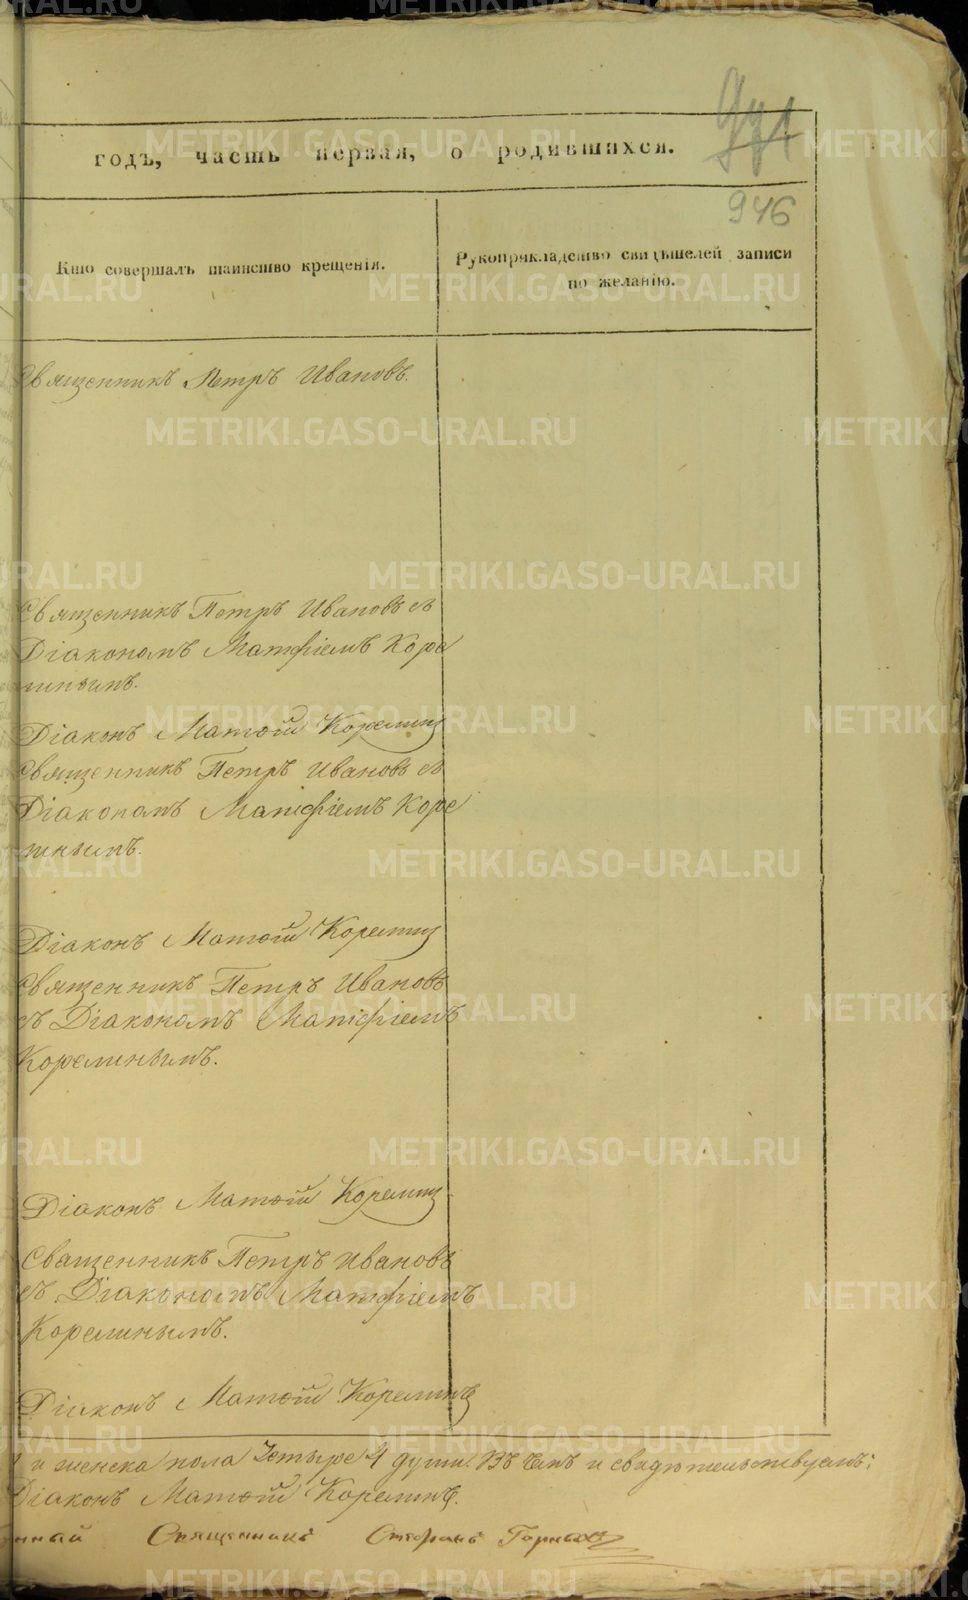 годъ, часть первая, о родившихся.
946
Кто совершалъ таинство крещенія.
Рукоприкладство свидѣтелей записи
по желанію.
Священникъ Петръ Ивановъ.
Священникъ Петръ Ивановъ съ
Діакономъ Матфіемъ Коре
Діаконъ Матѳій Корелинъ
Священникъ Петръ Ивановъ съ
Діакономъ Матфіемъ Коре
Діаконъ Матѳій Корелинъ
Священникъ Петръ Ивановъ
съ Діакономъ Матфіемъ
Корелинымъ.
Діаконъ Матѳій Корелинъ
Священникъ Петръ Ивановъ
съ Діакономъ Матфіемъ
Корелинымъ.
Діаконъ Матѳій Корелинъ
и женска пола четыре 4 души. Въ чемъ и свидѣтельствуемъ:
Діаконъ Матѳій Корелинъ.
Священникъ Стефанъ
METRIKI.GASO-URAL.RU